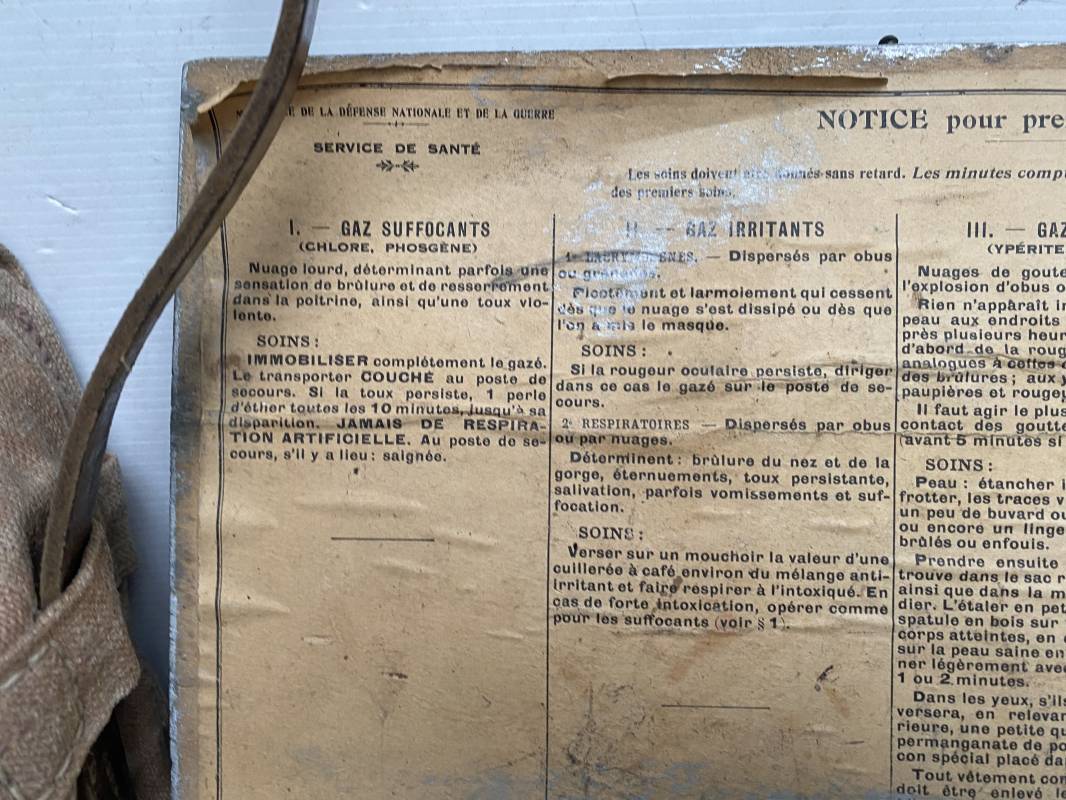 DE LA DÉFENSE NATIONALE ET DE LA GUERRE
SERVICE DE SANTÉ
NOTICE pour pre
Les soins doivent être donnés sans retard. Les minutes comp
des premiers soins.
I. — GAZ SUFFOCANTS
(CHLORE, PHOSGÈNE)
Nuage lourd, déterminant parfois une
sensation de brûlure et de resserrement
dans la poitrine, ainsi qu'une toux vio-
lente.
SOINS :
IMMOBILISER complétement le gazé.
Le transporter COUCHÉ au poste de
secours. Si la toux persiste, 1 perle
d'éther toutes les 10 minutes, jusqu'à sa
disparition. JAMAIS DE RESPIRA-
TION ARTIFICIELLE. Au poste de se-
cours, s'il y a lieu : saignée.
II. — GAZ IRRITANTS
1° LACRYMOGÈNES. — Dispersés par obus
ou grenades.
Picotement et larmoiement qui cessent
dès que le nuage s'est dissipé ou dès que
l'on a mis le masque.
SOINS :
Si la rougeur oculaire persiste, diriger
dans ce cas le gazé sur le poste de se-
cours.
2° RESPIRATOIRES — Dispersés par obus
ou par nuages.
Déterminent : brûlure du nez et de la
gorge, éternuements, toux persistante,
salivation, parfois vomissements et suf-
focation.
SOINS :
Verser sur un mouchoir la valeur d'une
cuillerée à café environ du mélange anti-
irritant et faire respirer à l'intoxiqué. En
cas de forte intoxication, opérer comme
pour les suffocants (voir § 1).
III. — GAZ
(YPÉRITE
Nuages de goute
l'explosion d'obus o
Rien n'apparaît in
peau aux endroits
près plusieurs heur
d'abord de la roug
analogues à celles d
des brûlures ; aux y
paupières et rouge
Il faut agir le plus
contact des goutte
(avant 5 minutes si
SOINS :
Peau : étancher
frotter, les traces v
un peu de buvard ou
ou encore un linge
brûlés ou enfouis.
Prendre ensuite
trouve dans le sac r
ainsi que dans la m
dier. L'étaler en pet
spatule en bois sur
corps atteintes, en
sur la peau saine en
ner légèrement ave
1 ou 2 minutes.
Dans les yeux, s'ils
versera, en relevan
rieure, une petite qu
permanganate de po
con spécial placé da
Tout vêtement con
doit être enlevé le